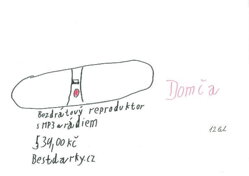 Bezdrátový reproduktor
s MP3 a rádiem
539,00 kč
Bestdarky.cz
Domča